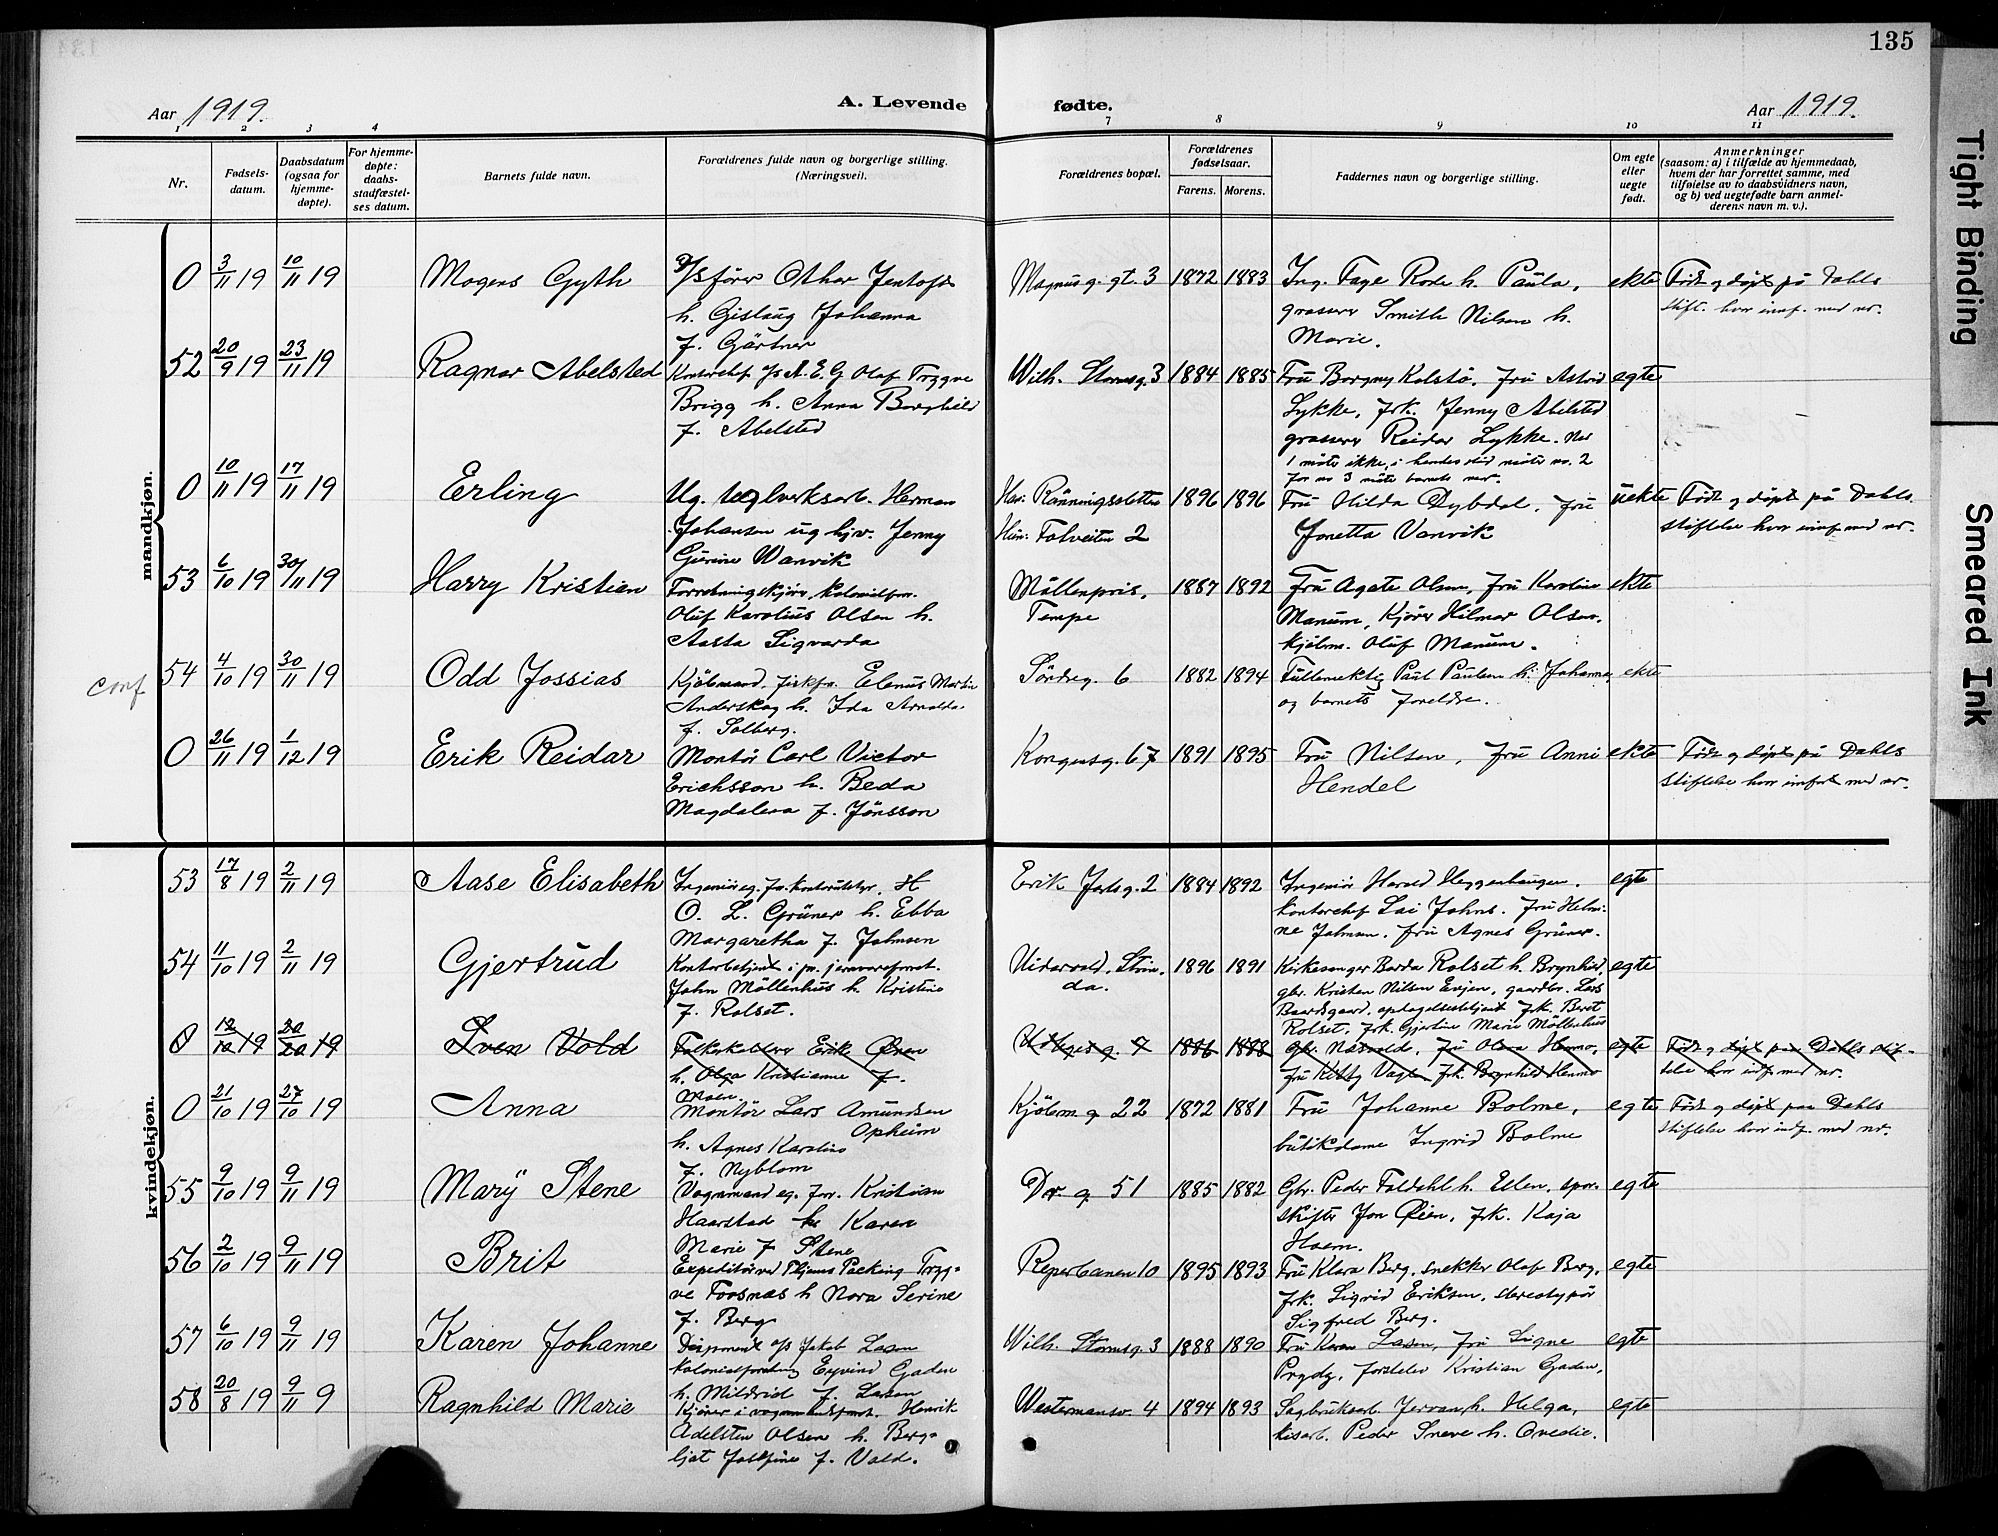 135
Aar 1919.
A. Levende fødte.
Aar 1919.
1 2 3 4 7 8 9 10 11
Nr.
Fødsels-
datum.
Daabsdatum
(ogsaa for
hjemme-
døpte).
For hjemme-
døpte:
daabs-
stadfæstel-
ses datum.
Barnets fulde navn.
Forældrenes fulde navn og borgerlige stilling.
(Næringsvei).
Forældrenes bopæl.
Forældrenes
fødselsaar.
Farens. Morens.
Faddernes navn og borgerlige stilling.
Om egte
eller
uegte
født.
Anmerkninger
(saasom: a) i tilfælde av hjemmedaab,
hvem der har forrettet samme, med
tilføielse av to daabsvidners navn,
og b) ved uegtefødte barn anmel-
derens navn m. v.).
mandkjøn.
0 3/11 19 10/11 19 Mogens Gyth
Othar Jentoft
h. Gislaug Johanna
f. Gärtner
Magnus g. gt. 3 1872 1883
Ing. Faye Rode h. Paula,
grosserer Smith Nilsen h.
Marie.
ekte
Født og døpt på Dahls
stift. hvor innf. med nr.
52 20/9 19 23/11 19 Ragnar Abelsted
Kontorchef A.E.G. Olaf Trygve
Brigg h. Anna Borghild
f. Abelsted
Wilh. Stormsg. 3 1884 1885
Fru Borgny Kolstø, fru Astrid
Lykke, frk. Jenny Abelsted
grosserer Reidar Lykke. Nr
1 møtte ikke, i hendes sted møtte no. 2
for no 3 møtte barnets mor.
egte
0 10/11 19 17/11 19 Erling
Ug. teglverksarb. Herman
Johansen ug hjv. Jenny
Gurine Wanvik
Han: Rønningsletten
Hun: Tolveiten 2
1896 1896
Fru Hilda Dybdal, fru
Jonetta Vanvik
uekte
Født og døpt på Dahls
stiftelse hvor innf med nr.
53 6/10 19 30/11 19 Harry Kristian
Forretningskjører, kolonialfor.
Oluf Karolius Olsen h.
Aasta Sigvarda
Møllenpris,
Tempe
1887 1892
Fru Agate Olsen, fru Karoline
Manum, Kjører Hilmar Olsen,
kjøbm. Oluf Manum.
ekte
conf
54 4/10 19 30/11 19 Odd Jossias
Kjøbmand. fiskfor. Elenus Martin
Anderskog h. Ida Arnolda
f. Solberg.
Söndreg. 6 1882 1894
Fullmektig Paul Paulsen h. Johanna,
og barnets foreldre.
ekte
0 26/11 19 1/12 19 Erik Reidar
Montør Carl Victor
Erichsson h. Beda
Magdalena f. Jönsson
Kongensg. 67 1891 1895
Fru Nilsen, fru Anni
Hendel
ekte
Født og døpt på Dahls
stiftelse hvor innført med nr.
kvindekjøn.
53 17/8 19 2/11 19 Aase Elisabeth
Ingeniør eg. for. kontorutstyr. H
O. L. Grüner h. Ebba
Margaretha f. Johnsen
Erik Jarlsg. 2 1884 1892
Ingeniør Harald Heggenhaugen.
kontorchef Lai Johns. fru Helmi-
ne Johnsen, fru Agnes Grüner.
egte
54 11/10 19 2/11 19 Gjertrud
Kontorbetjent i for. jernvareforret.
John Möllenhus h. Kristine
f. Rolset.
Strin-
da.
1896 1891
Kirkesanger Bardo Rolset h. Brynhild,
gbr. Kristen Nilsen Enjen, gaardbr. Lars
Baardsgaard, opdagelsesbetjent frk. Beret
Rolset, frk. Gjertine Marie Möllenhus
egte
0 12/10 19 20/10 19 Sven Vold
Erik Øien
h. Olga Kristianne f.
Moen.
7 1886 1888
Gbr. Nervold, fru Olava Hemmo,
fru Kitty Vagle, frk. Brynhild Hemmo
egte
Født og døpt paa Dahls stif-
telse hvor indf. med nr.
0 21/10 19 27/10 19 Anna
Montör Lars Amundsen
Opheim
h. Agnes Karoline
f. Nyblom
Kjöbm. g 22 1872 1881
Fru Johanne Bolme,
butikdame Ingrid Bolme
egte
Født og döpt paa Dahls
stiftelse hvor indf. med nr.
55 9/10 19 9/11 19 Marÿ Stene
Vognmand eg. for. Kristian
Haarstad h. Karen
Marie f Stene
Dr. g. 51 1885 1882
Gbr. Peder Foldahl h. Ellen, spor-
skifter Jon Øien, frk. Kaja
Hoem.
egte
56 2/10 19 9/11 19 Brit
Expeditør ved Thjems Packing Tryg-
ve Foosnæs h Nora Serine
f. Berg
Reperbanen 10 1895 1893
Fru Klara Berg, snekker Olaf Berg,
frk. Sigrid Eriksen, stereotypör
Sigfred Berg.
egte
57 6/10 19 9/11 19 Karen Johanne
Disponent Jakob Laxen
kolonialforretning Eyvind Gaden
h. Mildrid f. Laxen
Wilh. Stormsg. 3 1888 1890
Fru Karen Laxen, fru Signe
Prydz, forstelev Kristian Gaden,
egte
58 20/8 19 9/11 9 Ragnhild Marie
Kjører i vognmandsforr. Henrik
Adelsten Olsen h. Berg-
ljot Josefine f. Vold.
Westermansv. 4 1894 1893
Sagbruksarb. Jervan h. Helga,
kisarb. Peder Sneve h. Ovedie.
egte
Tight Binding
Smeared Ink